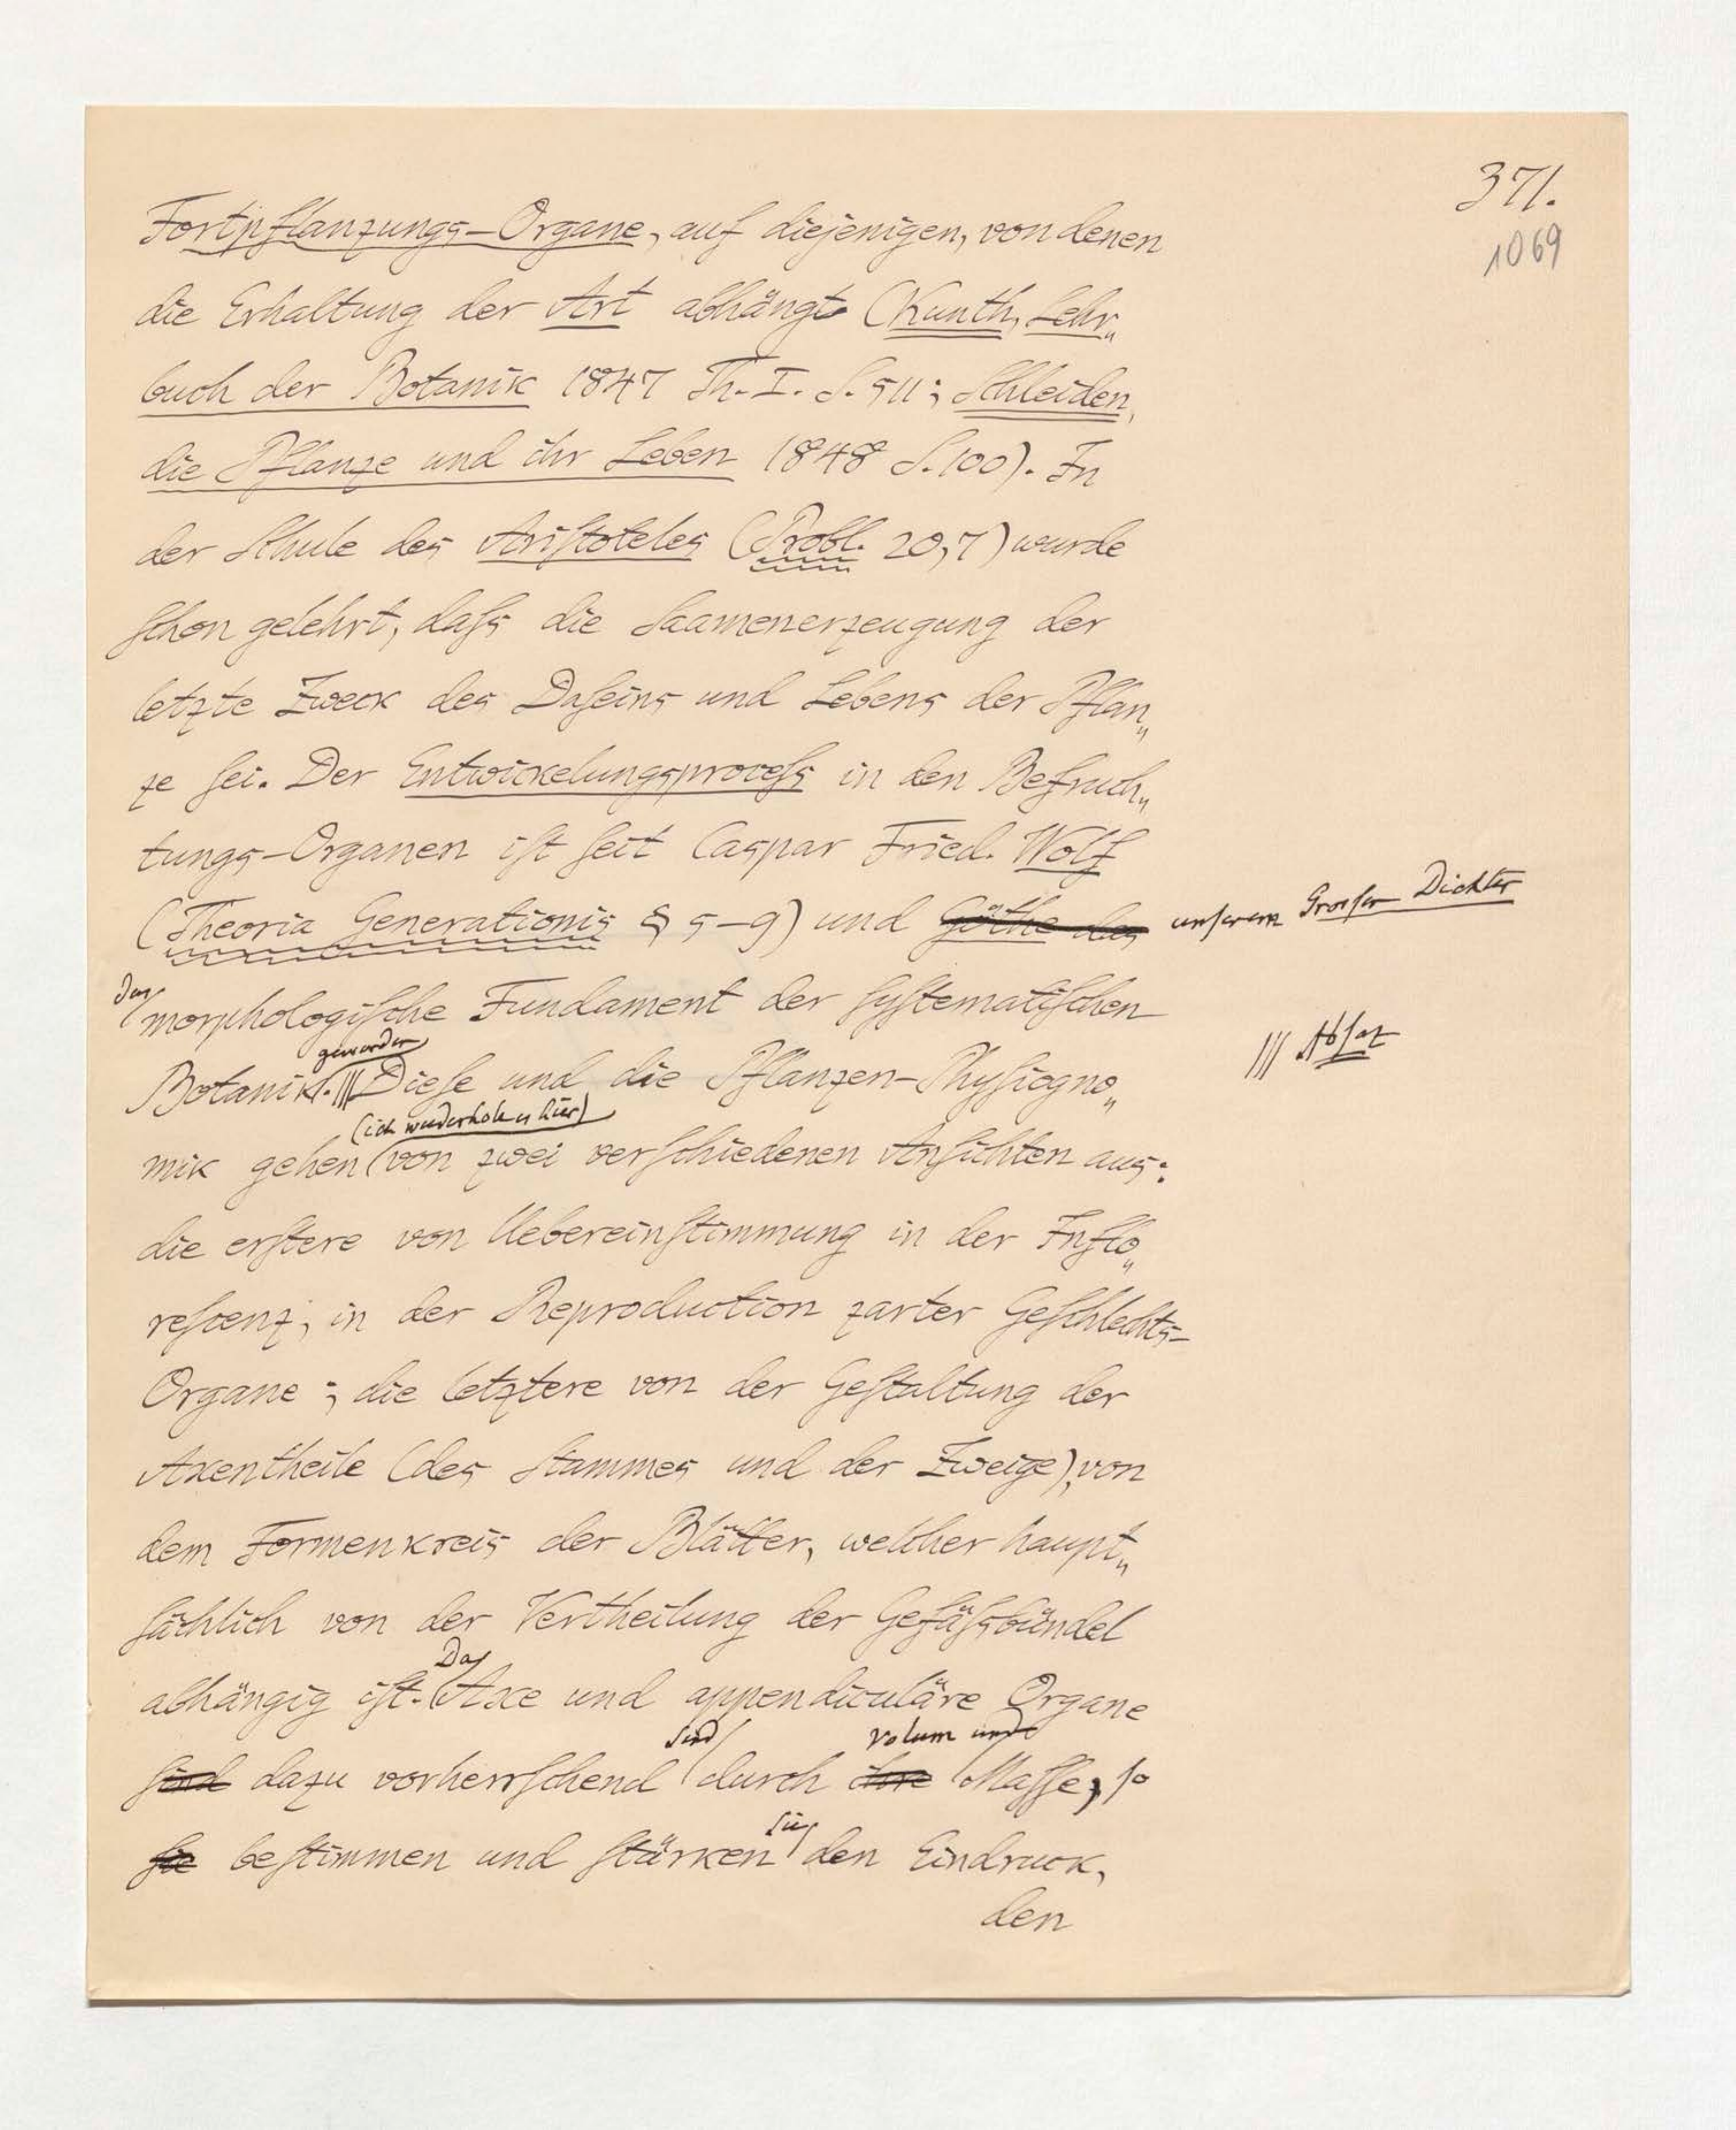 371.
1069
Fortpflanzungs-Organe, auf diejenigen, von denen
die Erhaltung der Art abhängt (Kunth, Lehr„
buch der Botanik 1847 Th. I. S. 511; Schleiden,
die Pflanze und ihr Leben 1848 S. 100). In
der Schule des Aristoteles (Probl. 20,7) wurde
schon gelehrt, dass die Saamenerzeugung der
letzte Zweck des Daseins und Lebens der Pflan„
ze sei. Der Entwickelungsprocess in den Befruch„
tungs-Organen ist seit Caspar Fried. Wolf
(Theoria Generationis § 5–9) und Göthe das unserem Grosser Dichter
das
morphologische Fundament der systematischen
geworden
Botanik. ||| Diese und die Pflanzen-Physiogno„
||| Absaz
(ich wiederhole es hier)
mik gehen von zwei verschiedenen Ansichten aus:
die erstere von Uebereinstimmung in der Inflo„
rescenz, in der Reproduction zarter Geschlechts-
Organe; die letztere von der Gestaltung der
Axentheile (des Stammes und der Zweige), von
dem Formenkreis der Blätter, welcher haupt„
sächlich von der Vertheilung der Gefässbündel
Da
abhängig ist. Axe und appendiculäre Organe
sind Volum und
sind dazu vorherrschend durch ihre Masse, so
sie
sie bestimmen und stärken den Eindruck,
den